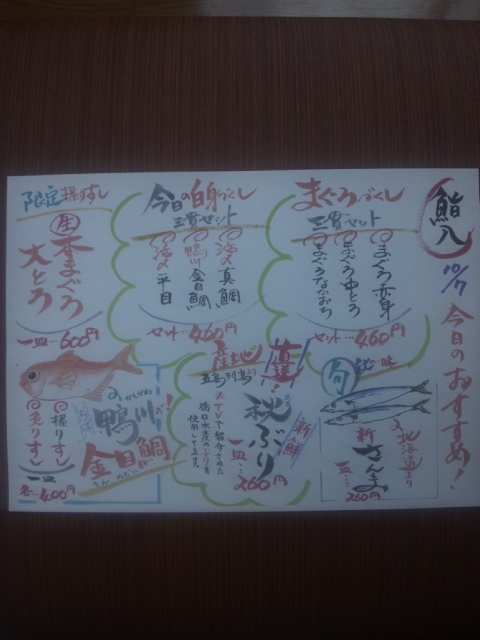 鮨八
10/7
今日のおすすめ!
まぐろづくし
三貫セット
まぐろ赤身
まぐろ中とろ
まぐろ
セット…460円
今日の白身づくし
三貫セット
真鯛
鴨川金目鯛
平目
セット…460円
限定握りすし
生
本まぐろ
大とろ
一皿…600円
旬
秋の味
北海道より
新さんま
一皿…260円
産地直送!
五島列島より
秋ぶり
新鮮
一皿…260円
TVで紹介された
橋口水産のぶりを
使用してます。
鴨川
金目鯛
きんめだい
握りすし
炙りすし
一皿
各…400円